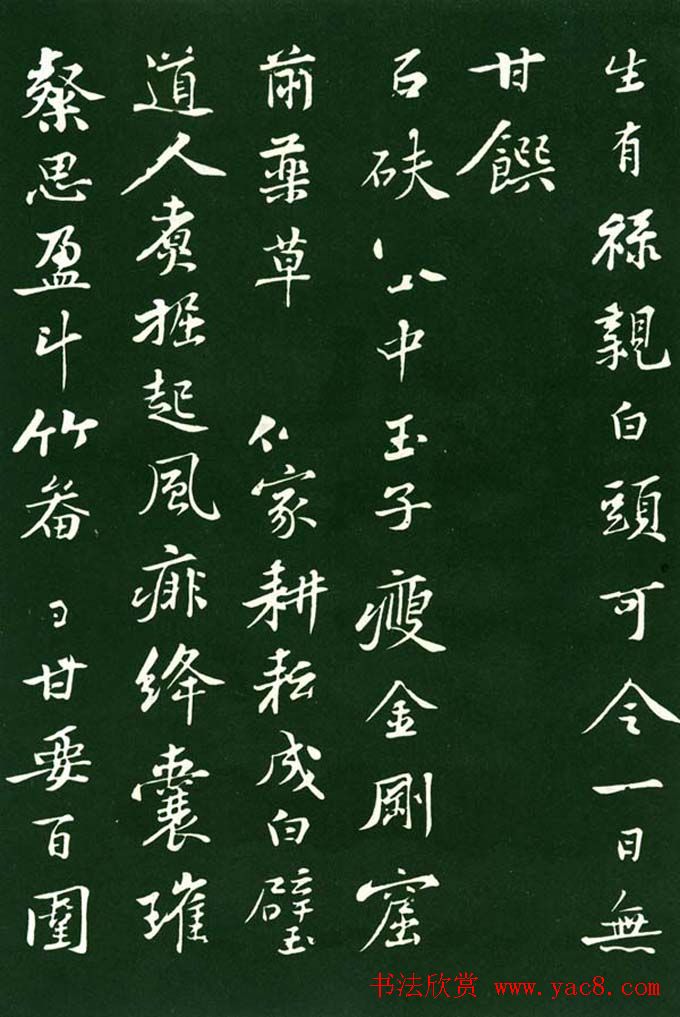 生有禄親白頭可令一日無
甘饌
石砆中玉子瘦金剛窟
前藥草家耕耘成白璧
道人煑掘起風痱絳囊璀
粲思盈斗竹畨〻甘要百圍
书法欣赏 www.yac8.com